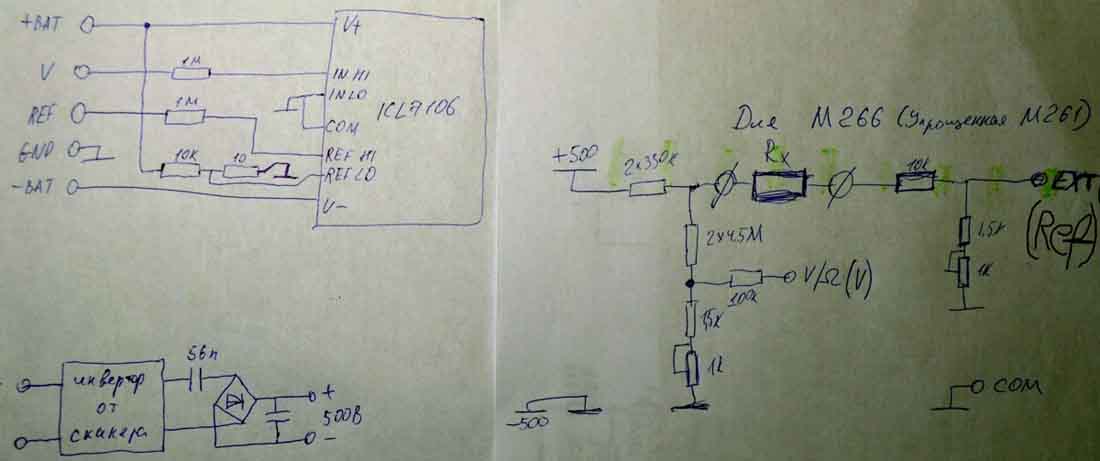 +BAT
V
REF
GND
-BAT
1M
1M
10K
10
V+
IN HI
IN LO
COM
REF HI
REF LO
V-
ICL7106
инвертор
от
сканера
56п
+
500В
-
Для М266 (Упрощенная М261)
+500
2x350k
Rx
10k
EXT
(Ref)
1,5k
1k
2x4.5M
100k
V/Ω(V)
1,5k
1k
-500
COM